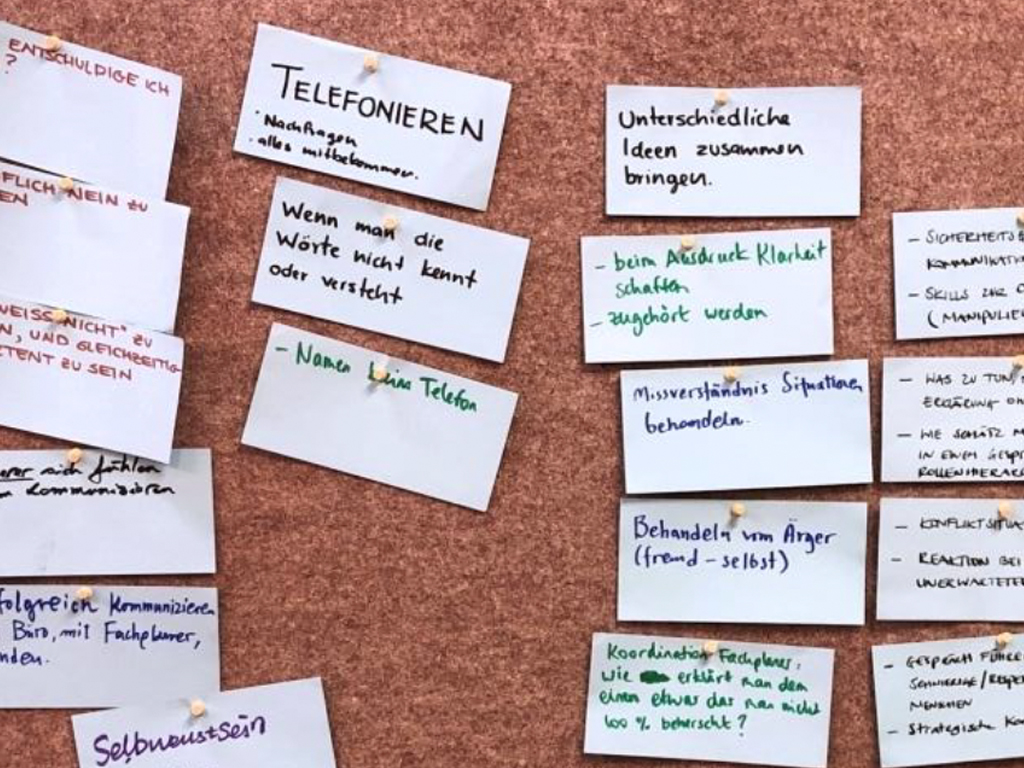 ENTSCHULDIGE ICH
?
FLICH NEIN ZU
EN
WEISS NICHT" ZU
N, UND GLEICHZEITIG
TENT ZU SEIN
sich fühlen
kommunizieren
folgreich kommunizieren
Büro, mit Fachplaner,
nden.
Selbwusstsein
TELEFONIEREN
· Nachfragen
· alles mitbekommen.
Wenn man die
Wörte nicht kennt
oder versteht
- Namen beim Telefon
Unterschiedliche
Ideen zusammen
bringen.
- beim Ausdruck Klarheit
schaffen
- zugehört werden
Missverständnis Situationen
behandeln.
Behandeln vom Ärger
(fremd - selbst)
Koordination Fachplaner,
wie erklärt man dem
einen etwas das man nicht
100 % beherscht?
- SICHERHEITS
KOMMUNIKATIO
- SKILLS ZUR
(MANIPULIE
- WAS ZU TUN,
ERKLÄRUNG
- WIE SCHÄTZ
IN EINEM GESPR
ROLLENHIERAR
- KONFLIKTSITUA
- REAKTION BEI
UNERWARTETE
- GESPRÄCH FÜHRE
SCHWIERIGE/RESPE
MENSCHEN
- Strategische Ko